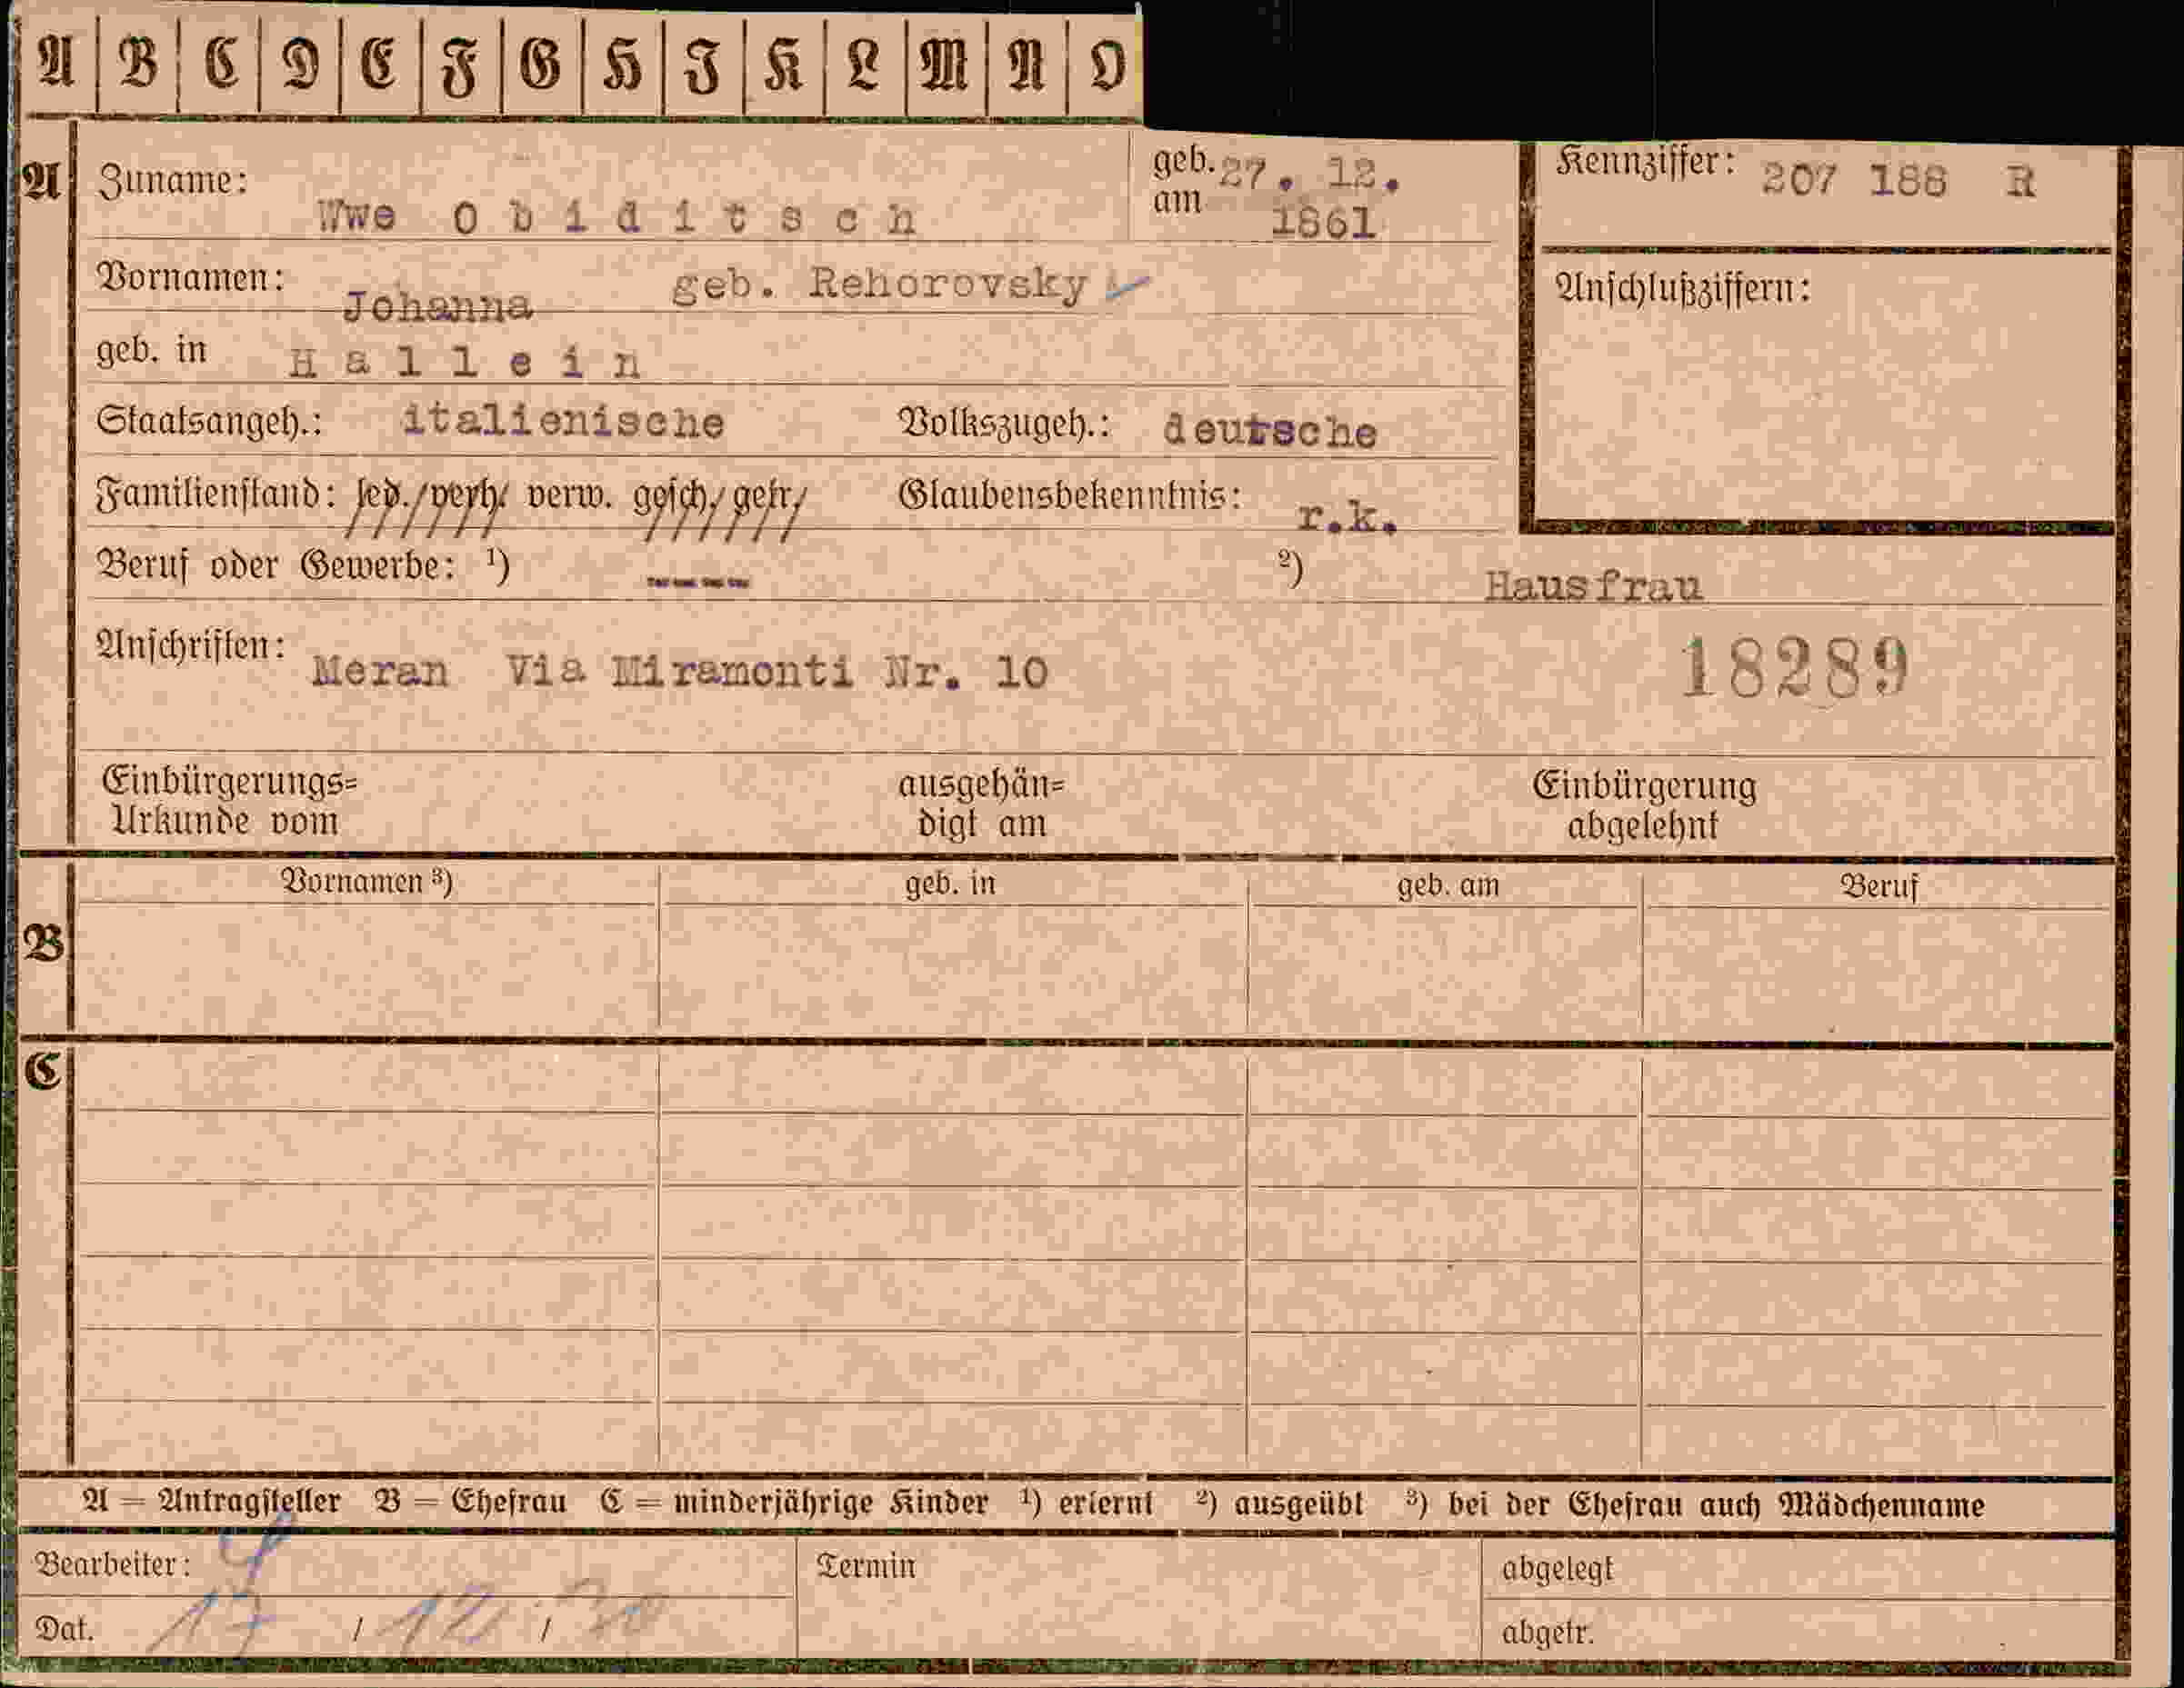 A B C D E F G H I K L M N O
A Zuname: Wwe Obiditsch geb. am 27. 12. 1861 Kennziffer: 207 188 R
Vornamen: Johanna geb. Rehorovsky Anschlußziffern:
geb. in Hallein
Staatsangeh.: italienische Volkszugeh.: deutsche
Familienstand: led./verh./ verw. gesch./ getr/ Glaubensbekenntnis: r.k.
Beruf oder Gewerbe: ¹) ---- ²) Hausfrau
Anschriften: Meran Via Miramonti Nr. 10 18289
Einbürgerungs= ausgehän= Einbürgerung
Urkunde vom digt am abgelehnt
Vornamen ³) geb. in geb. am Beruf
B
C
A = Antragsteller B = Ehefrau C = minderjährige Kinder ¹) erlernt ²) ausgeübt ³) bei der Ehefrau auch Mädchenname
Bearbeiter: Termin abgelegt
Dat. 17 / 12 / abgetr.